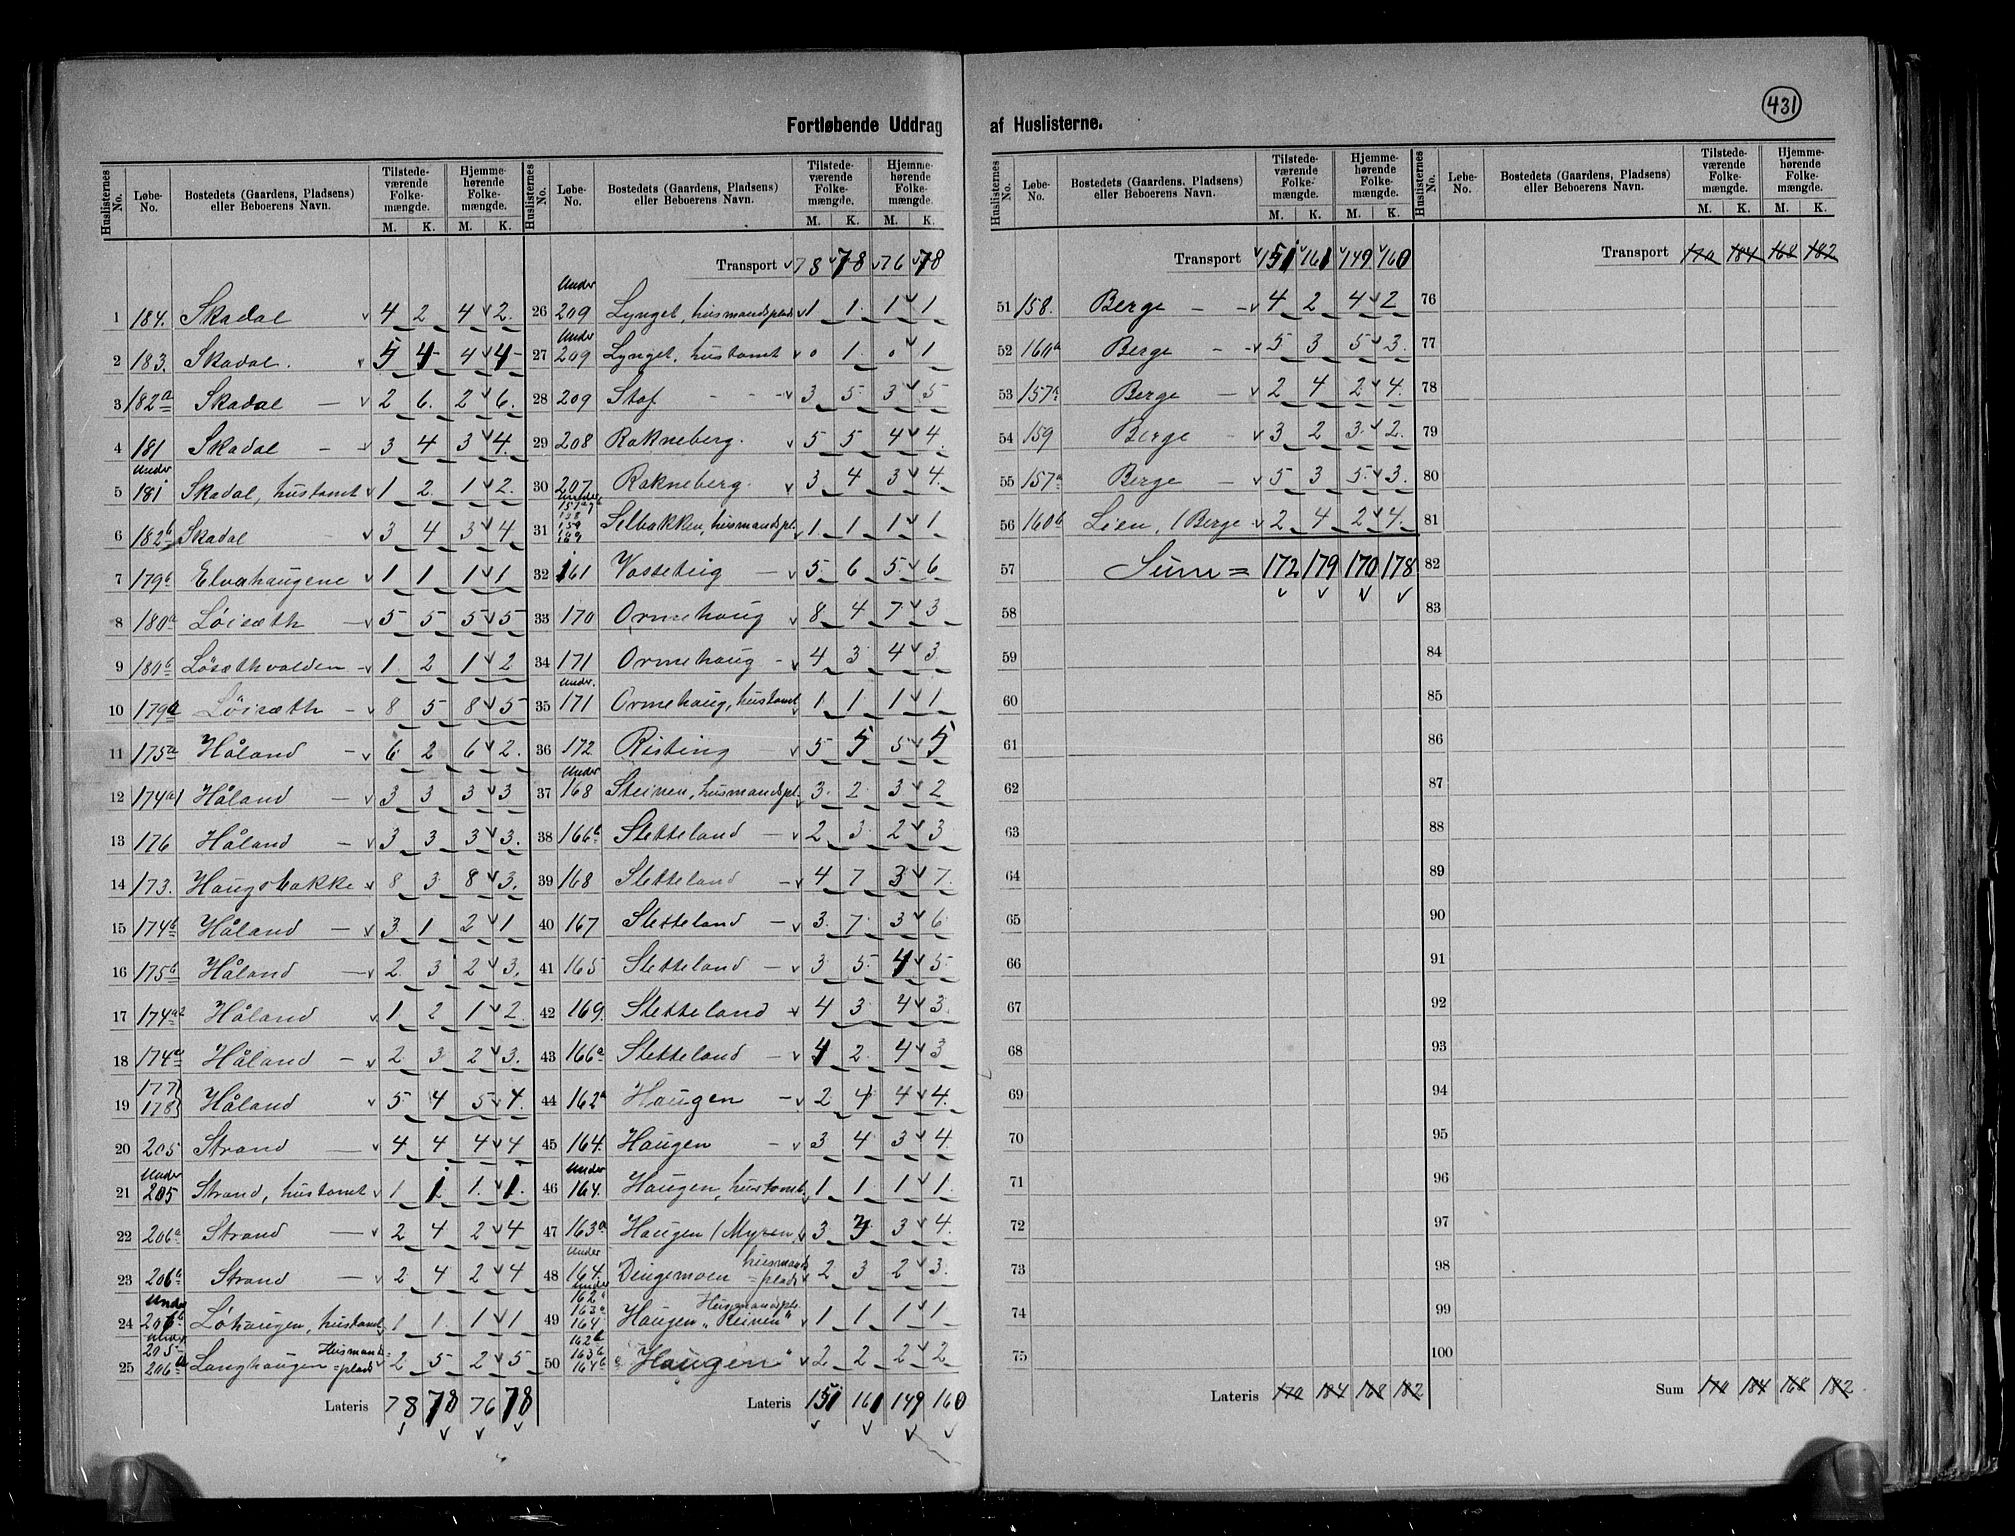 431
Fortløbende Uddrag af Huslisterne.
Huslisternes No. | Løbe-No. | Bostedets (Gaardens, Pladsens) eller Beboerens Navn. | Tilstedeværende Folkemængde. M. K. | Hjemmehørende Folkemængde. M. K.
1 184. Skadal 4 2 4 2.
2 183. Skadal. 5 4 4 4
3 182a Skadal 2 6. 2 6.
4 181 Skadal 3 4 3 4.
5 Under 181 Skadal, hustomt 1 2. 1 2.
6 182b Skadal 3 4 3 4
7 179b Elvahaugene 1 1 1 1
8 180a Løisæth 5 5 5 5
9 180b Løsæthvolden 1. 2 1 2
10 179a Løisæth 8 5 8 5
11 175a Håland 6 2 6 2.
12 174a1 Håland 3 3 3 3
13 176 Håland 3 3 3 3.
14 173. Haugsbakke 8 3 8 3.
15 174b Håland 3 1 2 1
16 175b Håland 2 3 2 3.
17 174a2 Håland 1 2 1 2.
18 174a Håland 2 3 2 3.
19 177 178 Håland 5 4 5 4.
20 205 Strand 4 4 4 4
21 Under 205 Strand, hustomt 1 1 1. 1.
22 206a Strand 2 4 2 4
23 206b Strand 2 4 2 4
24 Under 206b Løhaugen, hustomt 1 1 1 1
25 Under 205 206a Langhaugen Husmands=plads 2 5 2 5
Lateris 78 78 76 78
Huslisternes No. | Løbe-No. | Bostedets (Gaardens, Pladsens) eller Beboerens Navn. | Tilstedeværende Folkemængde. M. K. | Hjemmehørende Folkemængde. M. K.
Transport 78 78 76 78
26 Under 209 Lynget, husmandsplads 1 1 1 1
27 Under 209 Lynget, hustomt 0 1 0 1
28 209 Stof 3 5 3 5
29 208 Rakneberg. 5 5 4 4.
30 207 Rakneberg. 3 4 3 4.
31 Under 157a 158 159 160 Selbakken, husmandspl. 1 1 1 1
32 161 Vasseteig 5 6 5 6
33 170 Ormehaug 8 4 7 3
34 171 Ormehaug 4 3 4 3
35 Under. 171 Ormehaug, hustomt 1 1 1 1
36 172 Risting 5 5 5 5
37 Under 168 Steinen, husmandspl. 3 2 3 2
38 166b Sletteland 2 3 2 3
39 168 Sletteland 4 7 3 7.
40 167 Sletteland 3 7 3 6
41 165 Sletteland 3 5 4 5
42 169. Sletteland 4 3 4 3
43 166a Sletteland 4 2 4 3
44 162a Haugen 2 4 4 4.
45 164. Haugen 3 4 3 4.
46 Under 164. Haugen, hustomt. 1 1 1 1.
47 163a Haugen (Myren) 3 3 3 4.
48 Under 164. Dingemoen husmands=plads 2 3 2 3.
49 Under 162a 163a 164 Haugen "Reinen" Husmandspls. 1 1 1 1
50 162b 163b 164b Haugen" 2 2 2 2
Lateris 151 161 149 160
Huslisternes No. | Løbe-No. | Bostedets (Gaardens, Pladsens) eller Beboerens Navn. | Tilstedeværende Folkemængde. M. K. | Hjemmehørende Folkemængde. M. K.
Transport 151 161 149 160
51 158. Berge 4 2 4 2
52 160a Berge 5 3 5 3.
53 157a Berge 2 4 2 4.
54 159 Berge 3 2 3 2.
55 157a Berge 5 3 5 3.
56 160b Lien, (Berge 2 4 2 4.
57 Sum = 172 179 170 178
58
59
60
61
62
63
64
65
66
67
68
69
70
71
72
73
74
75
Lateris 170 184 168 182
Huslisternes No. | Løbe-No. | Bostedets (Gaardens, Pladsens) eller Beboerens Navn. | Tilstedeværende Folkemængde. M. K. | Hjemmehørende Folkemængde. M. K.
Transport 170 184 168 182
76
77
78
79
80
81
82
83
84
85
86
87
88
89
90
91
92
93
94
95
96
97
98
99
100
Sum 170 184 168 182